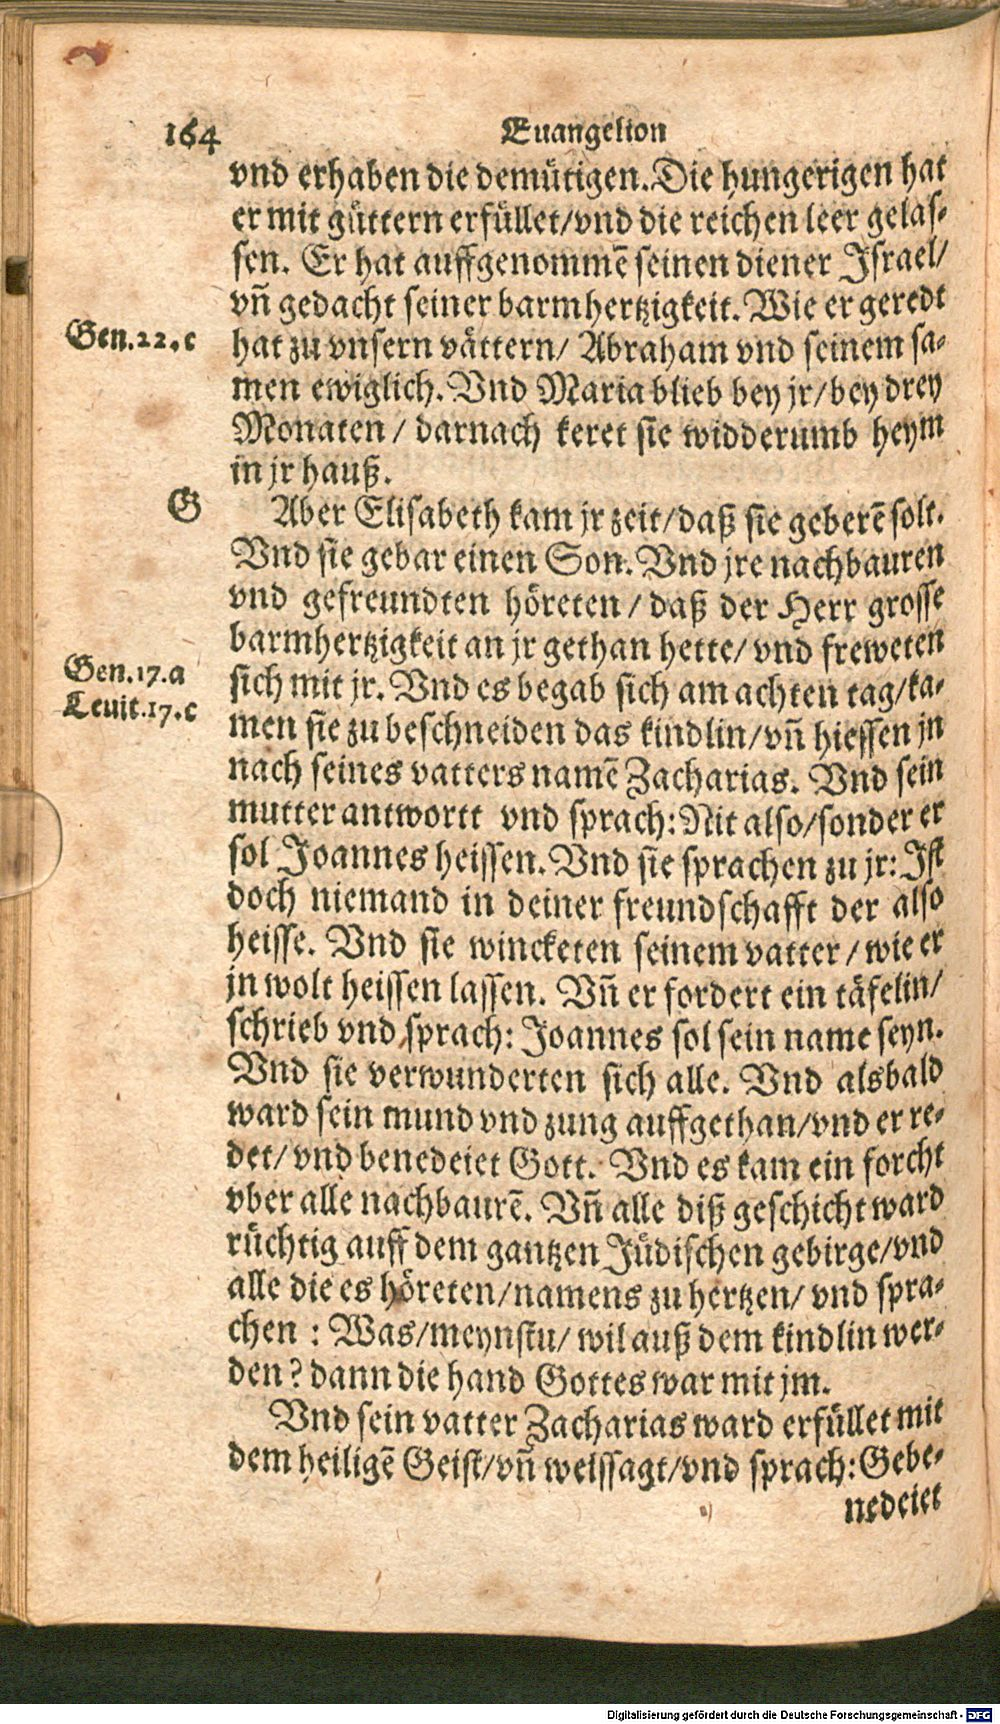 164 Euangelion
vnd erhaben die demütigen. Die hungerigen hat
er mit güttern erfüllet/vnd die reichen leer gelas-
sen. Er hat auffgenommē seinen diener Israel/
vn̄ gedacht seiner barmhertzigkeit. Wie er geredt
Gen.22.c
hat zu vnsern vättern/ Abraham vnd seinem sa-
men ewiglich. Vnd Maria blieb bey jr/bey drey
Monaten/ darnach keret sie widderumb heym
in jr hauß.
G
Aber Elisabeth kam jr zeit/daß sie geberē solt.
Vnd sie gebar einen Son. Vnd jre nachbauren
vnd gefreundten höreten/ daß der Herr grosse
barmhertzigkeit an jr gethan hette/ vnd freweten
Gen.17.a
sich mit jr. Vnd es begab sich am achten tag/ka-
Leuit.17.c
men sie zu beschneiden das kindlin/vn̄ hiessen jn
nach seines vatters namē Zacharias. Vnd sein
mutter antwortt vnd sprach: Nit also/sonder er
sol Joannes heissen. Vnd sie sprachen zu jr: Ist
doch niemand in deiner freundschafft der also
heisse. Vnd sie wincketen seinem vatter/ wie er
jn wolt heissen lassen. Vn̄ er fordert ein täfelin/
schrieb vnd sprach: Joannes sol sein name seyn.
Vnd sie verwunderten sich alle. Vnd alsbald
ward sein mund vnd zung auffgethan/vnd er re-
det/ vnd benedeiet Gott. Vnd es kam ein forcht
vber alle nachbaurē. Vn̄ alle diß geschicht ward
rüchtig auff dem gantzen Jüdischen gebirge/vnd
alle die es höreten/namens zu hertzen/ vnd spra-
chen : Was/meynstu/ wil auß dem kindlin wer-
den? dann die hand Gottes war mit jm.
Vnd sein vatter Zacharias ward erfüllet mit
dem heiligē Geist/vn̄ weissagt/vnd sprach: Gebe-
nedeiet
Digitalisierung gefördert durch die Deutsche Forschungsgemeinschaft - DFG